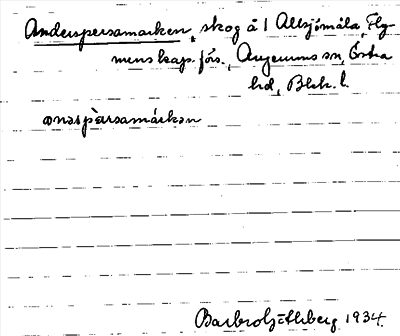 Anderspersamarken, skog å 1 Allsjömåla, Flymens kap. förs., Augerums sn, Östra hd, Blek. l.
anəspèrsamárkən
Barbro Göthberg 1934.